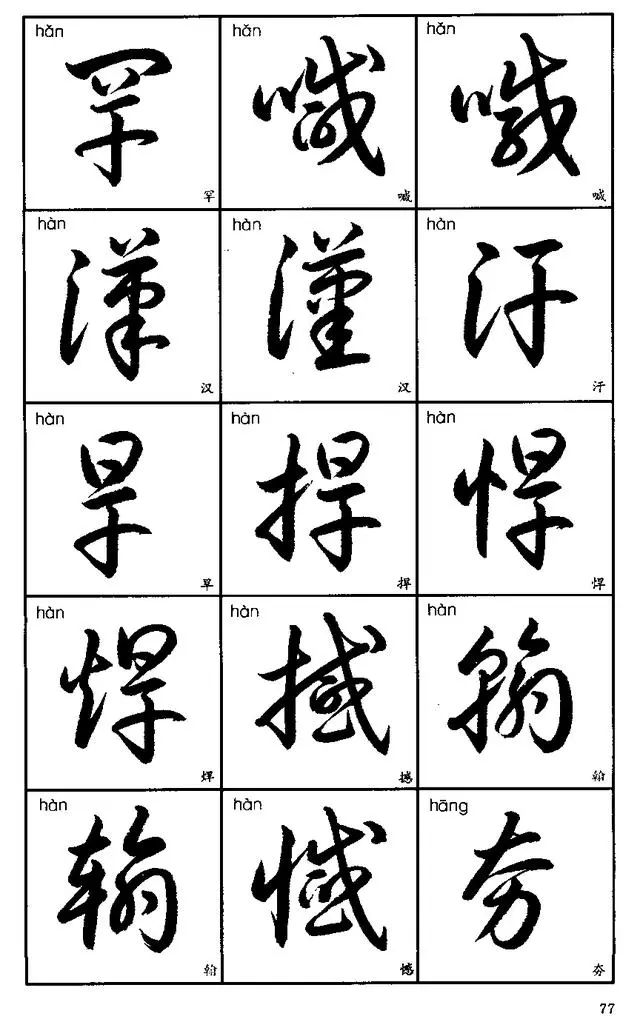 hǎn hǎn hǎn
罕 喊 喊
罕 喊 喊
hàn hàn hàn
漢 漢 汗
汉 汉 汗
hàn hàn hàn
旱 捍 悍
旱 捍 悍
hàn hàn hàn
焊 撼 翰
焊 撼 翰
hàn hàn hāng
翰 憾 夯
翰 憾 夯
77